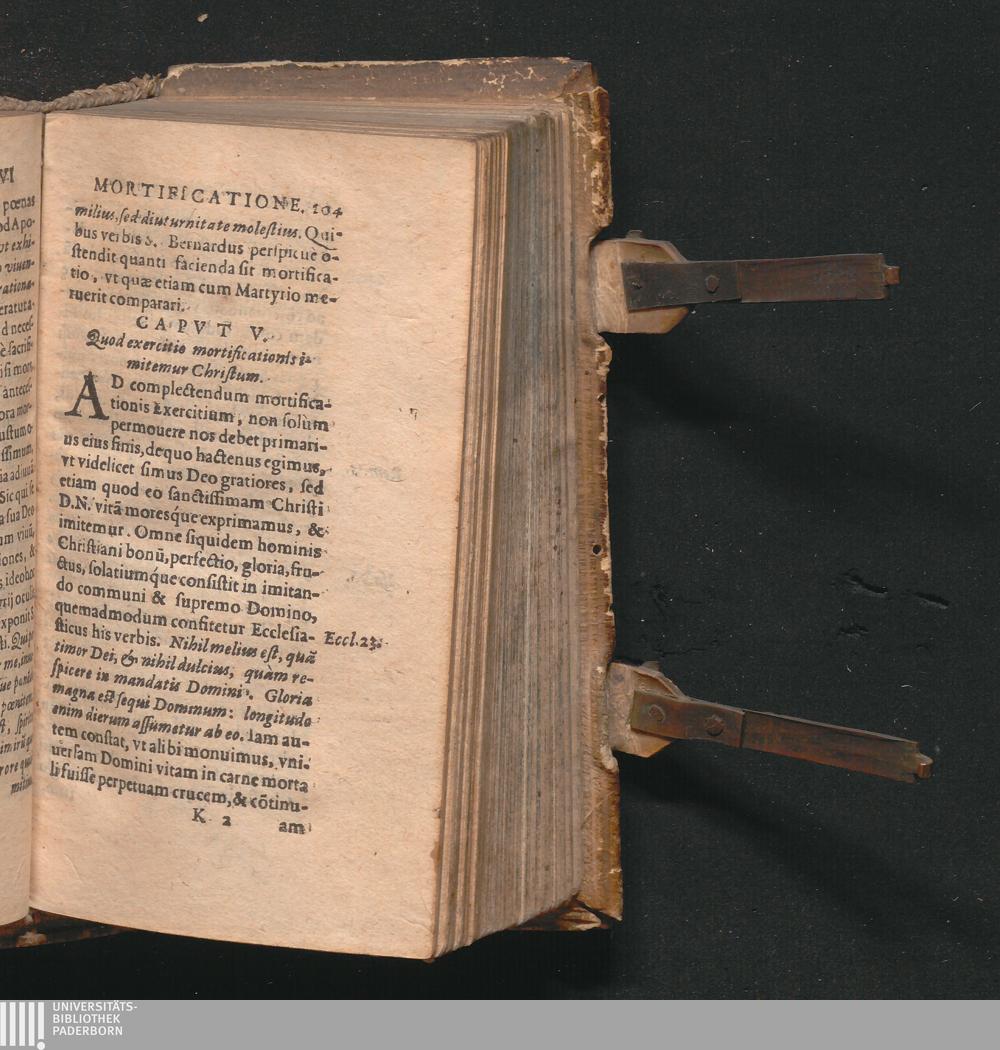 VI
pœnas
MORTIFICATIONE. 104
milius, sed diuturnitate molestius. Qui-
bus verbis S. Bernardus perspicuè o-
stendit quanti facienda sit mortifica-
tio, vt quæ etiam cum Martyrio me-
ruerit comparari.
CAPVT V.
Quod exercitio mortificationis i-
mitemur Christum.
AD complectendum mortifica-
tionis Exercitium, non solùm
permouere nos debet primari-
us eius finis, de quo hactenus egimus,
vt videlicet simus Deo gratiores, sed
etiam quod eo sanctissimam Christi
D.N. vitã moresq́ue exprimamus, &
imitemur. Omne siquidem hominis
Christiani bonũ, perfectio, gloria, fru-
ctus, solatiumq́ue consistit in imitan-
do communi & supremo Domino,
quemadmodum confitetur Ecclesia-
sticus his verbis. Nihil melius est, quã
Eccl. 23.
timor Dei, & nihil dulcius, quàm re-
spicere in mandatis Domini. Gloria
magna est sequi Dominum: longitudo
enim dierum assumetur ab eo. Iam au-
tem constat, vt alibi monuimus, vni-
uersam Domini vitam in carne morta
li fuisse perpetuam crucem, & cõtinu-
K 2 am
UNIVERSITÄTS-
BIBLIOTHEK
PADERBORN